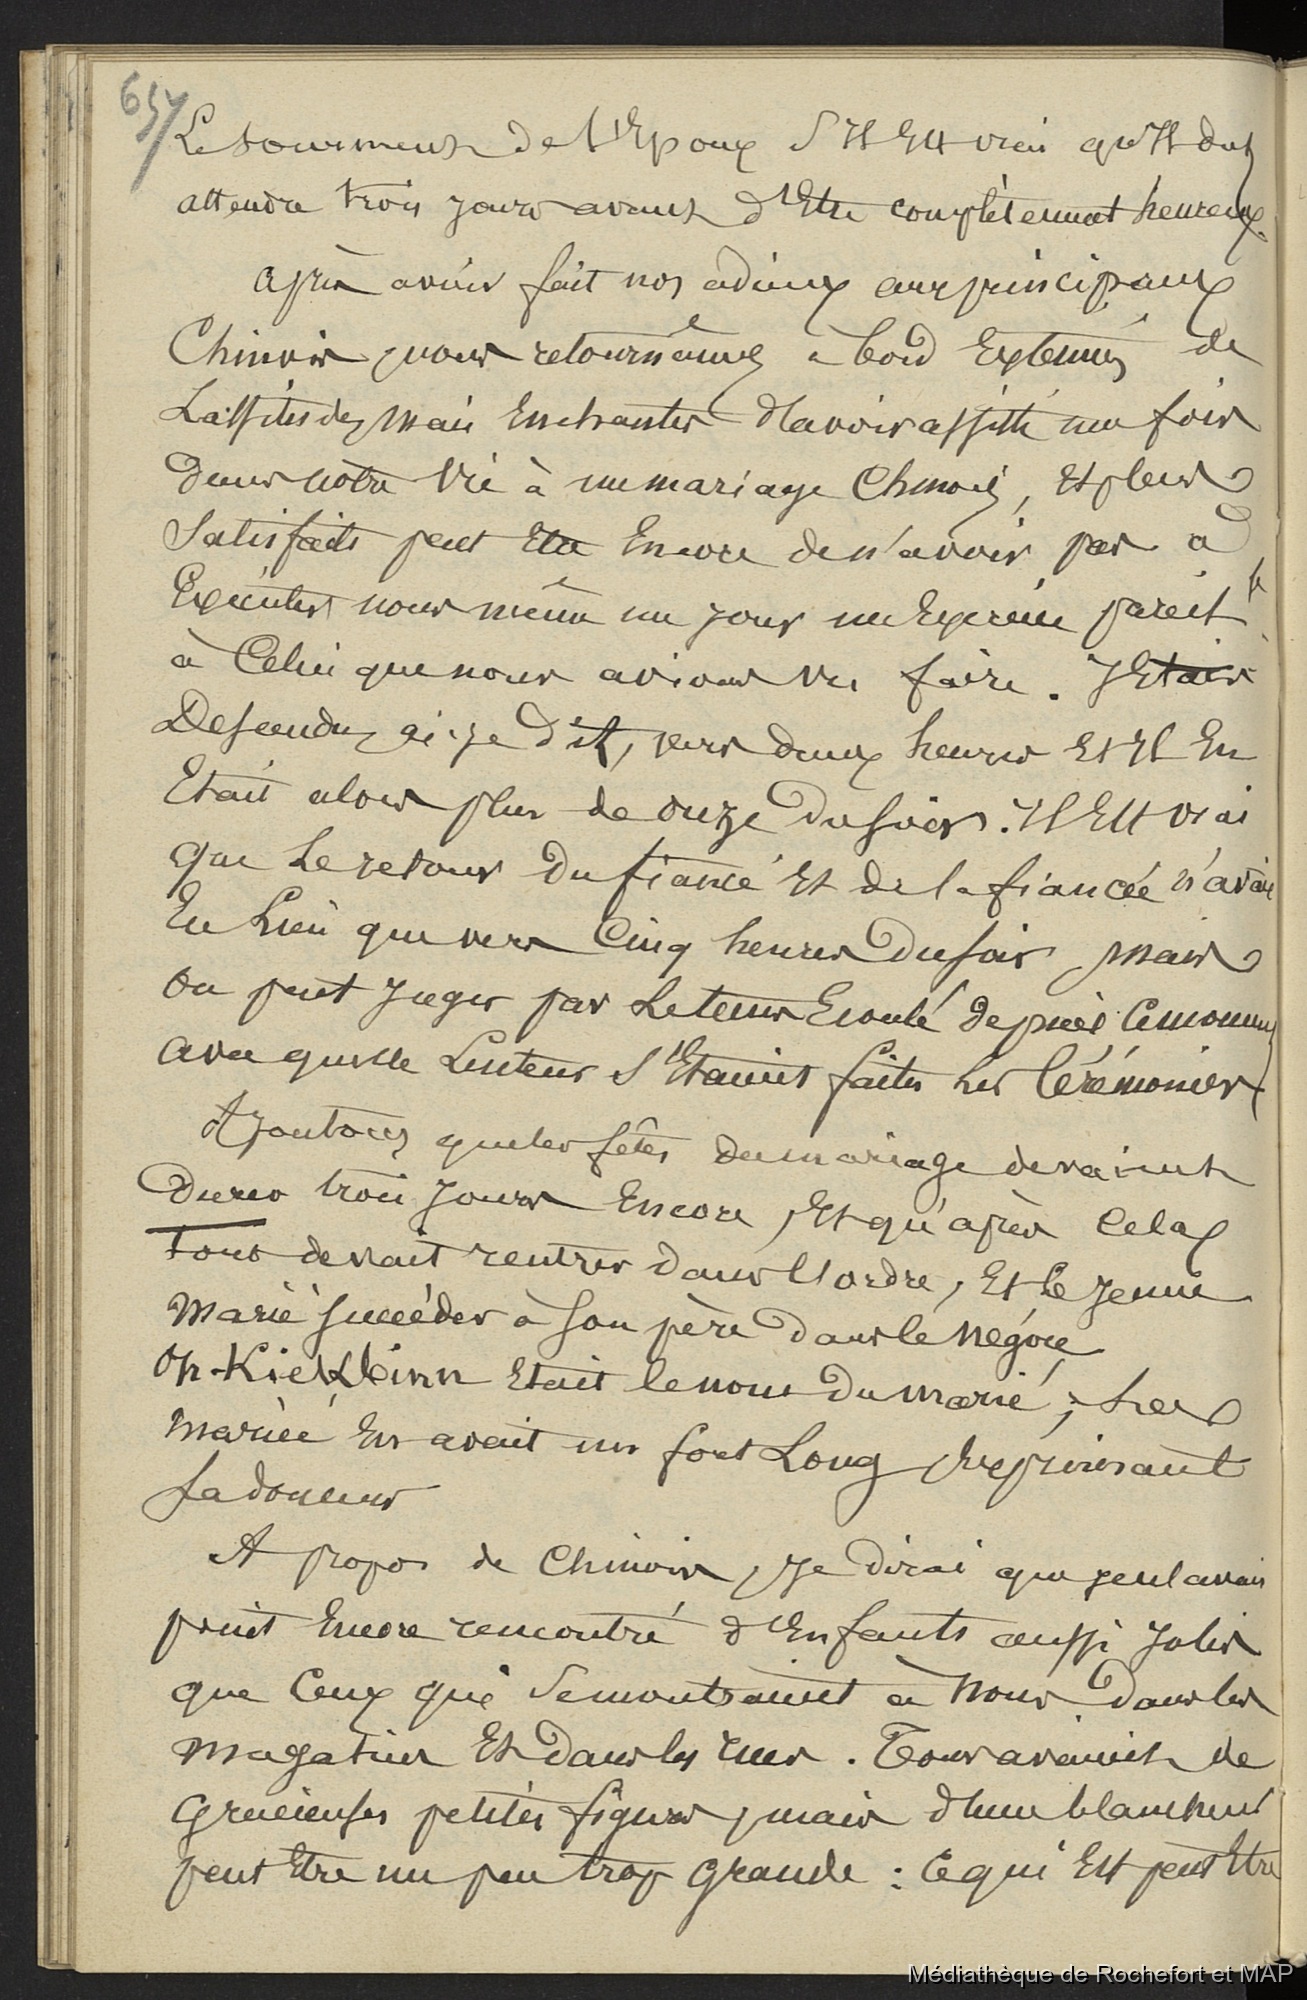 657
Le tourment de l'Epoux S'Il Est vrai qu'Il dut
attendre trois jours avant d'Etre complètement heureux.
Après avoir fait nos adieux aux principaux
Chinois, nous retournâmes à bord Exténués de
Lassitudes, mais Enchantés d'avoir assisté une fois
dans notre Vie à un mariage Chinois, Et plus
Satisfaits peut Etre Encore de n'avoir pas à
Exécuter nous même un jour un Exercice pareil
à Celui que nous avions vu faire. J'Etais
Descendu, ai-je dit, vers deux heures Et Il En
Etait alors plus de onze du soir. Il Est vrai
que Le retour du fiancé Et de la fiancée n'avait
Eu Lieu que vers Cinq heures du soir, mais
on peut juger par Le tems Ecoulé depuis Ce moment
avec quelle Lenteur S'Etaient faites Les Cérémonies
Ajoutons que les fêtes du mariage devaient
Durer trois jours Encore, Et qu'après Cela
tout devait rentrer dans l'ordre, Et Le jeune
Marié succéder à Son père dans le Négoce
Etait le nom du marié; La
Mariée En avait un fort Long, Exprimant
sa douceur
A propos de Chinois, je dirai que je n'avais
point Encore rencontré d'Enfants aussi jolis
que Ceux qui Se montraient à Nous dans les
magasins Et dans les rues. Tous avaient de
Gracieuses petites figures, mais d'une blancheur
peut Etre un peu trop Grande : Ce qui Est peut Etre
Médiathèque de Rochefort et MAP